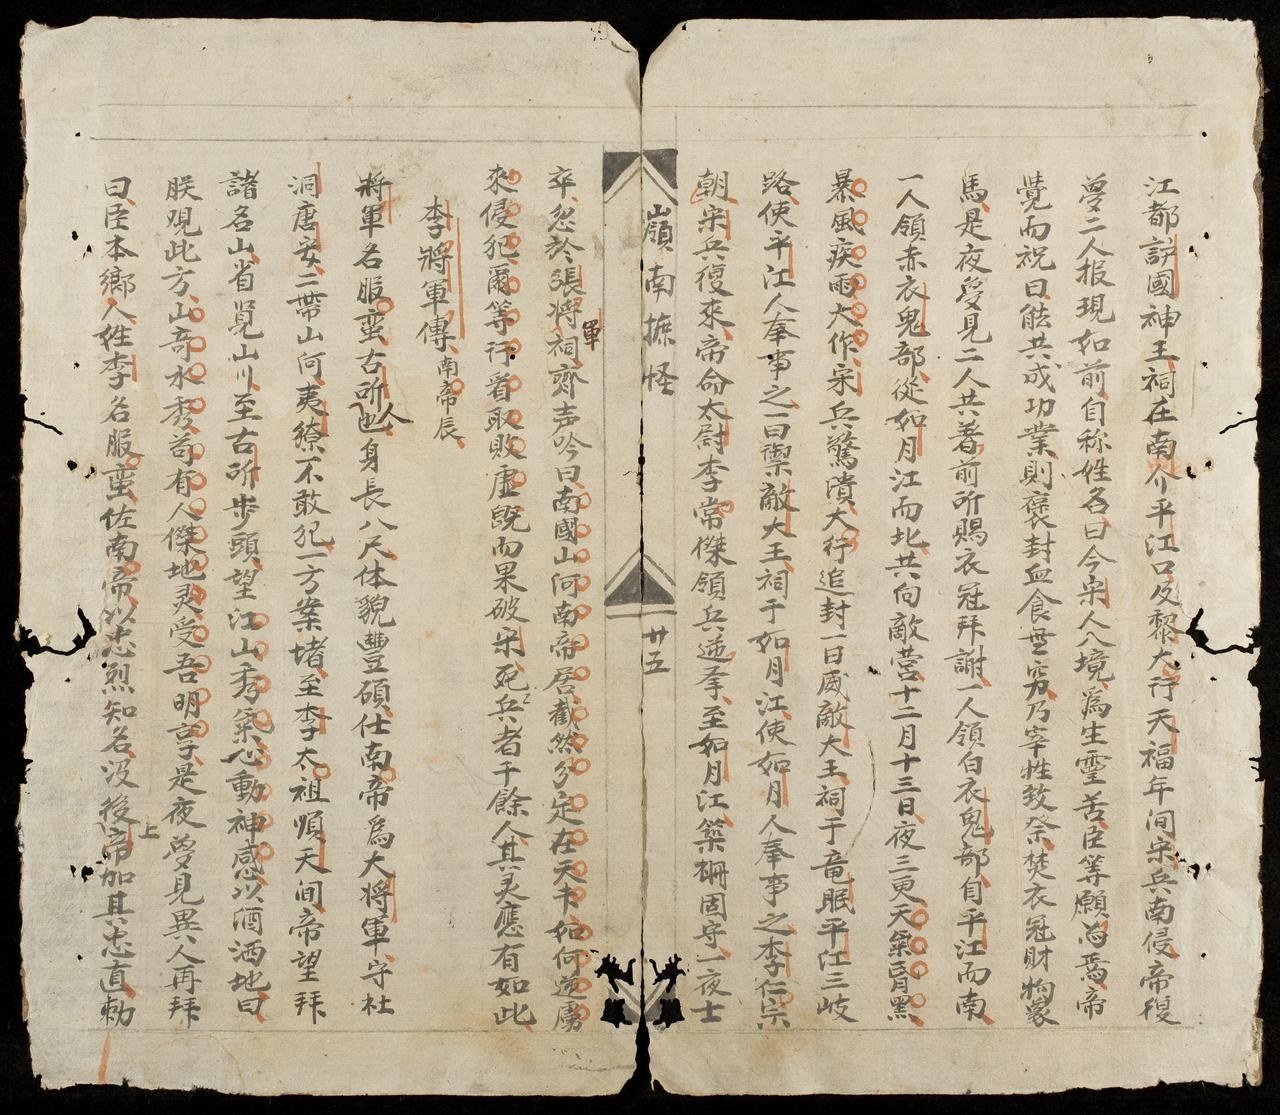 江都護國神王祠在南介平江口及黎大行天福年间宋兵南侵帝復
夢二人报現如前自称姓名曰今宋人入境為生灵苦臣等願為焉帝
覺而祝曰能共成功業則褒封血食無穷乃宰牲致祭焚衣冠財物象
馬是夜夢見二人共著前所賜衣冠拜謝一人領白衣鬼部自平江而南
一人領赤衣鬼部從如月江而北共向敵营十二月十三日夜三更天氣昏黑
暴風疾雨大作宋兵驚潰大行追封一曰威敵大王祠于竜眠平江三岐
路使平江人奉事之一曰禦敵大王祠于如月江使如月人奉事之李仁宗
朝宋兵復來帝命太尉李常傑領兵逆拿至如月江築柵固守一夜士
嶺南摭怪
廿五
卒忽於張將軍祠齊声吟曰南國山河南帝居截然分定在天书如何逆虜
來侵犯爾等行看取敗虛既而果破宋死兵者千餘人其灵應有如此
李將軍傳南帝辰
將軍名服蛮古所人也身長八尺体貌豐碩仕南帝為大將軍守杜
洞唐安二帶山河夷獠不敢犯一方案堵至李太祖順天间帝望拜
諸名山省覓山川至古所步頭望江山秀氣心動神感以酒洒地曰
朕观此方山奇水秀苟有人傑地灵受吾明享是夜夢見異人再拜
曰臣本鄉人姓李名服蛮佐南帝以忠烈知名没後上帝加其忠直勅